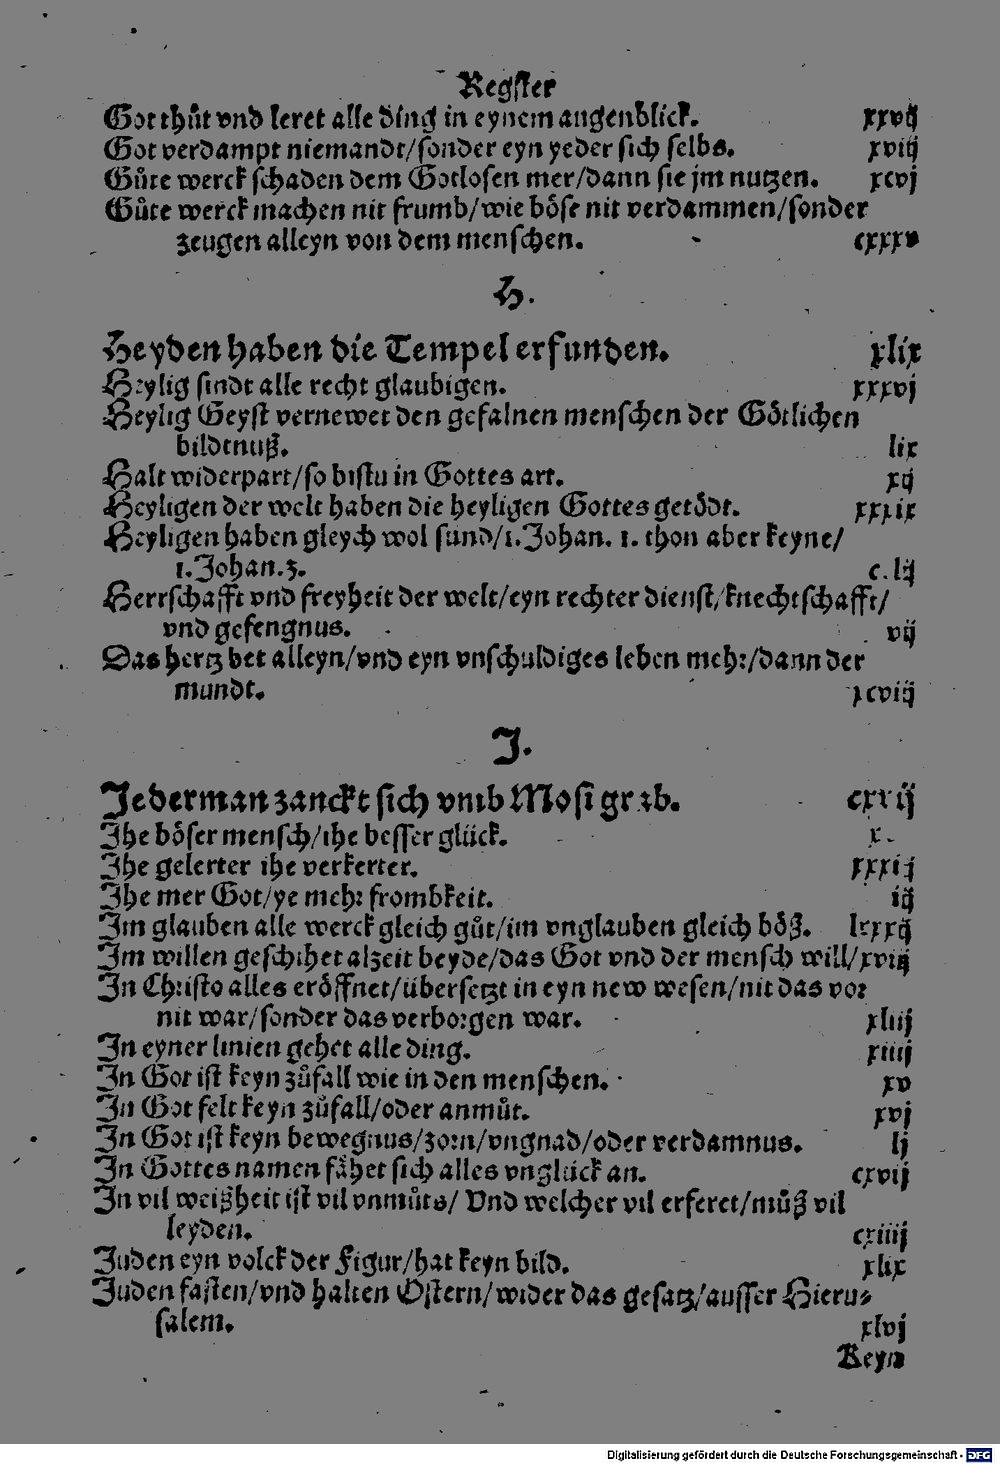 Regster
Got thůt vnd leret alle ding in eynem augenblick. xxvij
Got verdampt niemandt/sonder eyn yeder sich selbs. xviij
Gůte werck schaden dem Gotlosen mer/dann sie jm nutzen. xcvj
Gůte werck machen nit frumb/wie böse nit verdammen/sonder
zeugen alleyn von dem menschen. cxxxv
H.
Heyden haben die Tempel erfunden. xlix
Heylig sindt alle recht glaubigen. xxxvj
Heylig Geyst vernewet den gefalnen menschen der Götlichen
bildtnuß. lix
Halt widerpart/so bistu in Gottes art. xij
Heyligen der welt haben die heyligen Gottes getödt. xxxix
Heyligen haben gleych wol sünd/1.Johan. 1. thon aber keyne/
1.Johan.3. c.lij
Herrschafft vnd freyheit der welt/eyn rechter dienst/knechtschafft/
vnd gefengnus. vij
Das hertz bet alleyn/vnd eyn vnschuldiges leben mehr/dann der
mundt. xcviij
J.
Jederman zanckt sich vmb Mosi grab. cxxij
Jhe böser mensch/ihe besser glück. x.
Jhe gelerter ihe verkerter. xxxij
Jhe mer Got/ye mehr frombkeit. iij
Jm glauben alle werck gleich gůt/im vnglauben gleich böß. lxxxij
Jm willen geschihet alzeit beyde/das Got vnd der mensch will/xviij
Jn Christo alles eröffnet/übersetzt in eyn new wesen/nit das vor
nit war/sonder das verborgen war. xliij
Jn eyner linien gehet alle ding. xiiij
Jn Got ist keyn zůfall wie in den menschen. xv
Jn Got felt keyn zůfall/oder anmůt. xvj
Jn Got ist keyn bewegnus/zorn/vngnad/oder verdamnus. lj
Jn Gottes namen fåhet sich alles vnglück an. cxvij
Jn vil weißheit ist vil vnmůts/ Vnd welcher vil erferet/můß vil
leyden. cxiiij
Juden eyn volck der Figur/hat keyn bild. xlix
Juden fasten/vnd halten Ostern/wider das gesatz/ausser Hieru⸗
salem. xlvj
Keyn
Digitalisierung gefördert durch die Deutsche Forschungsgemeinschaft - DFG